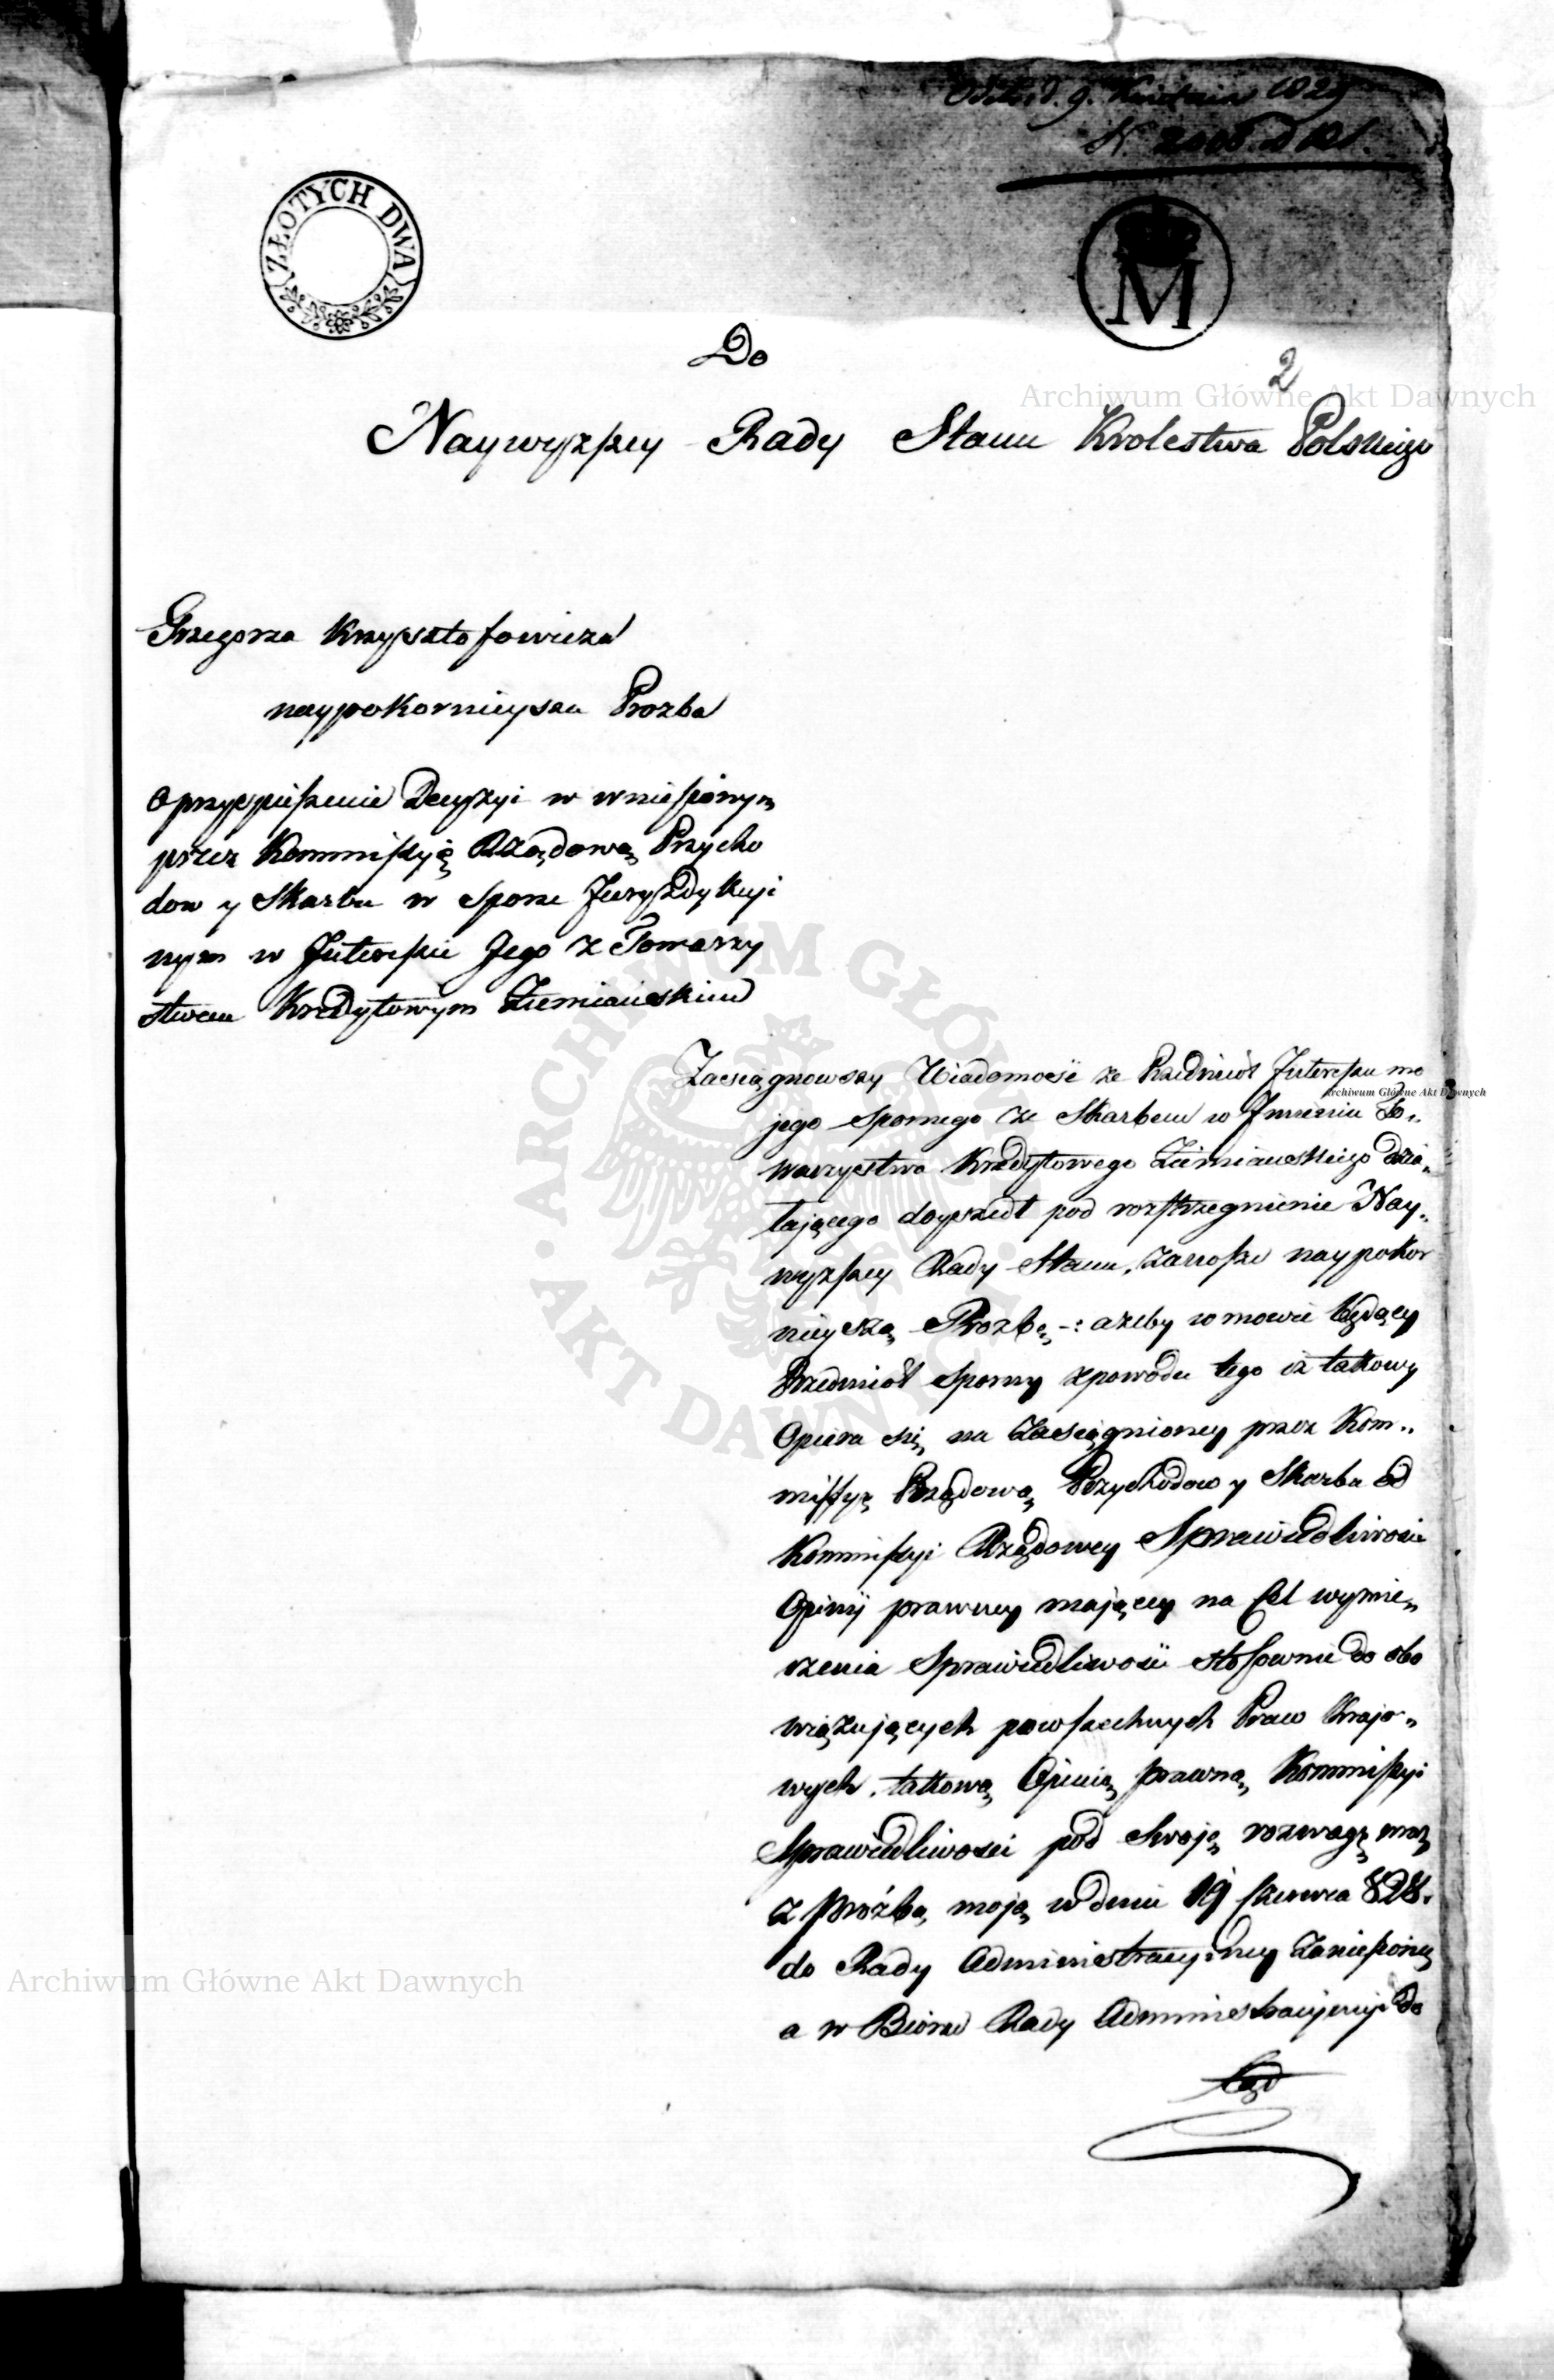 Odeb. d. 9. Kwietnia 1829
N. 2008. D R S.
ZŁOTYCH DWA
M
Do
2
Naywyzszey Rady Stanu Krolestwa Polskiego
Grzegorza Krzysztofowicza
naypokornieysza Prozba
o przyspieszenie Decyzyi w wniesionym
przez Kommissyią Rządową Przycho
dow y Skarbu w sporze Juryzdykcyi
nym w Interessie Jego z Towarzy
stwem Kredytowym Ziemianskim
Zasiągnowszy Wiadomosci ze Przedmiot Interessu mo
jego spornego ze Skarbem w Imieniu To„
warzystwa Kredytowego Ziemianskiego dzia„
łającego doyszedł pod rozstrzegnienie Nay„
wyzszey Rady Stanu, zanosze naypokor
nieyszą Prozbę -: azeby w mowie będący
Przedmiot sporny z powodu tego iz takowy
Opiera się na Zasiągnioney przez Kom„
missyę Rządową Przychodow y Skarbu od
Kommissyi Rządowey Sprawiedliwosci
Opinij prawney mającey na Cel wymie„
rzenia Sprawiedliwosci stosownie do obo
wiązujących powszechnych Praw Krajo„
wych, takową Opinią prawną Kommissyi
Sprawiedliwosci pod swoję rozwagę wraz
z proźbą moją w dniu 19 Czerwca 828.
do Rady Administracyiney zaniesioną
a w Biorze Rady Administracyinyi do
Archiwum Główne Akt Dawnych
Archiwum Główne Akt Dawnych
Archiwum Główne Akt Dawnych
ARCHIWUM GŁÓWNE AKT DAWNYCH